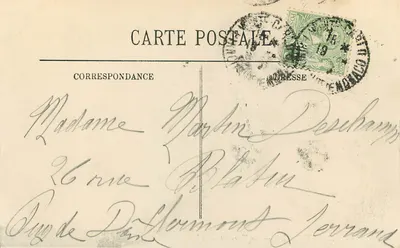 CARTE POSTALE
CORRESPONDANCE
ADRESSE
Madame Martin Deschamps
26 rue Blatin
Puy de Dôme Clermont Ferrand